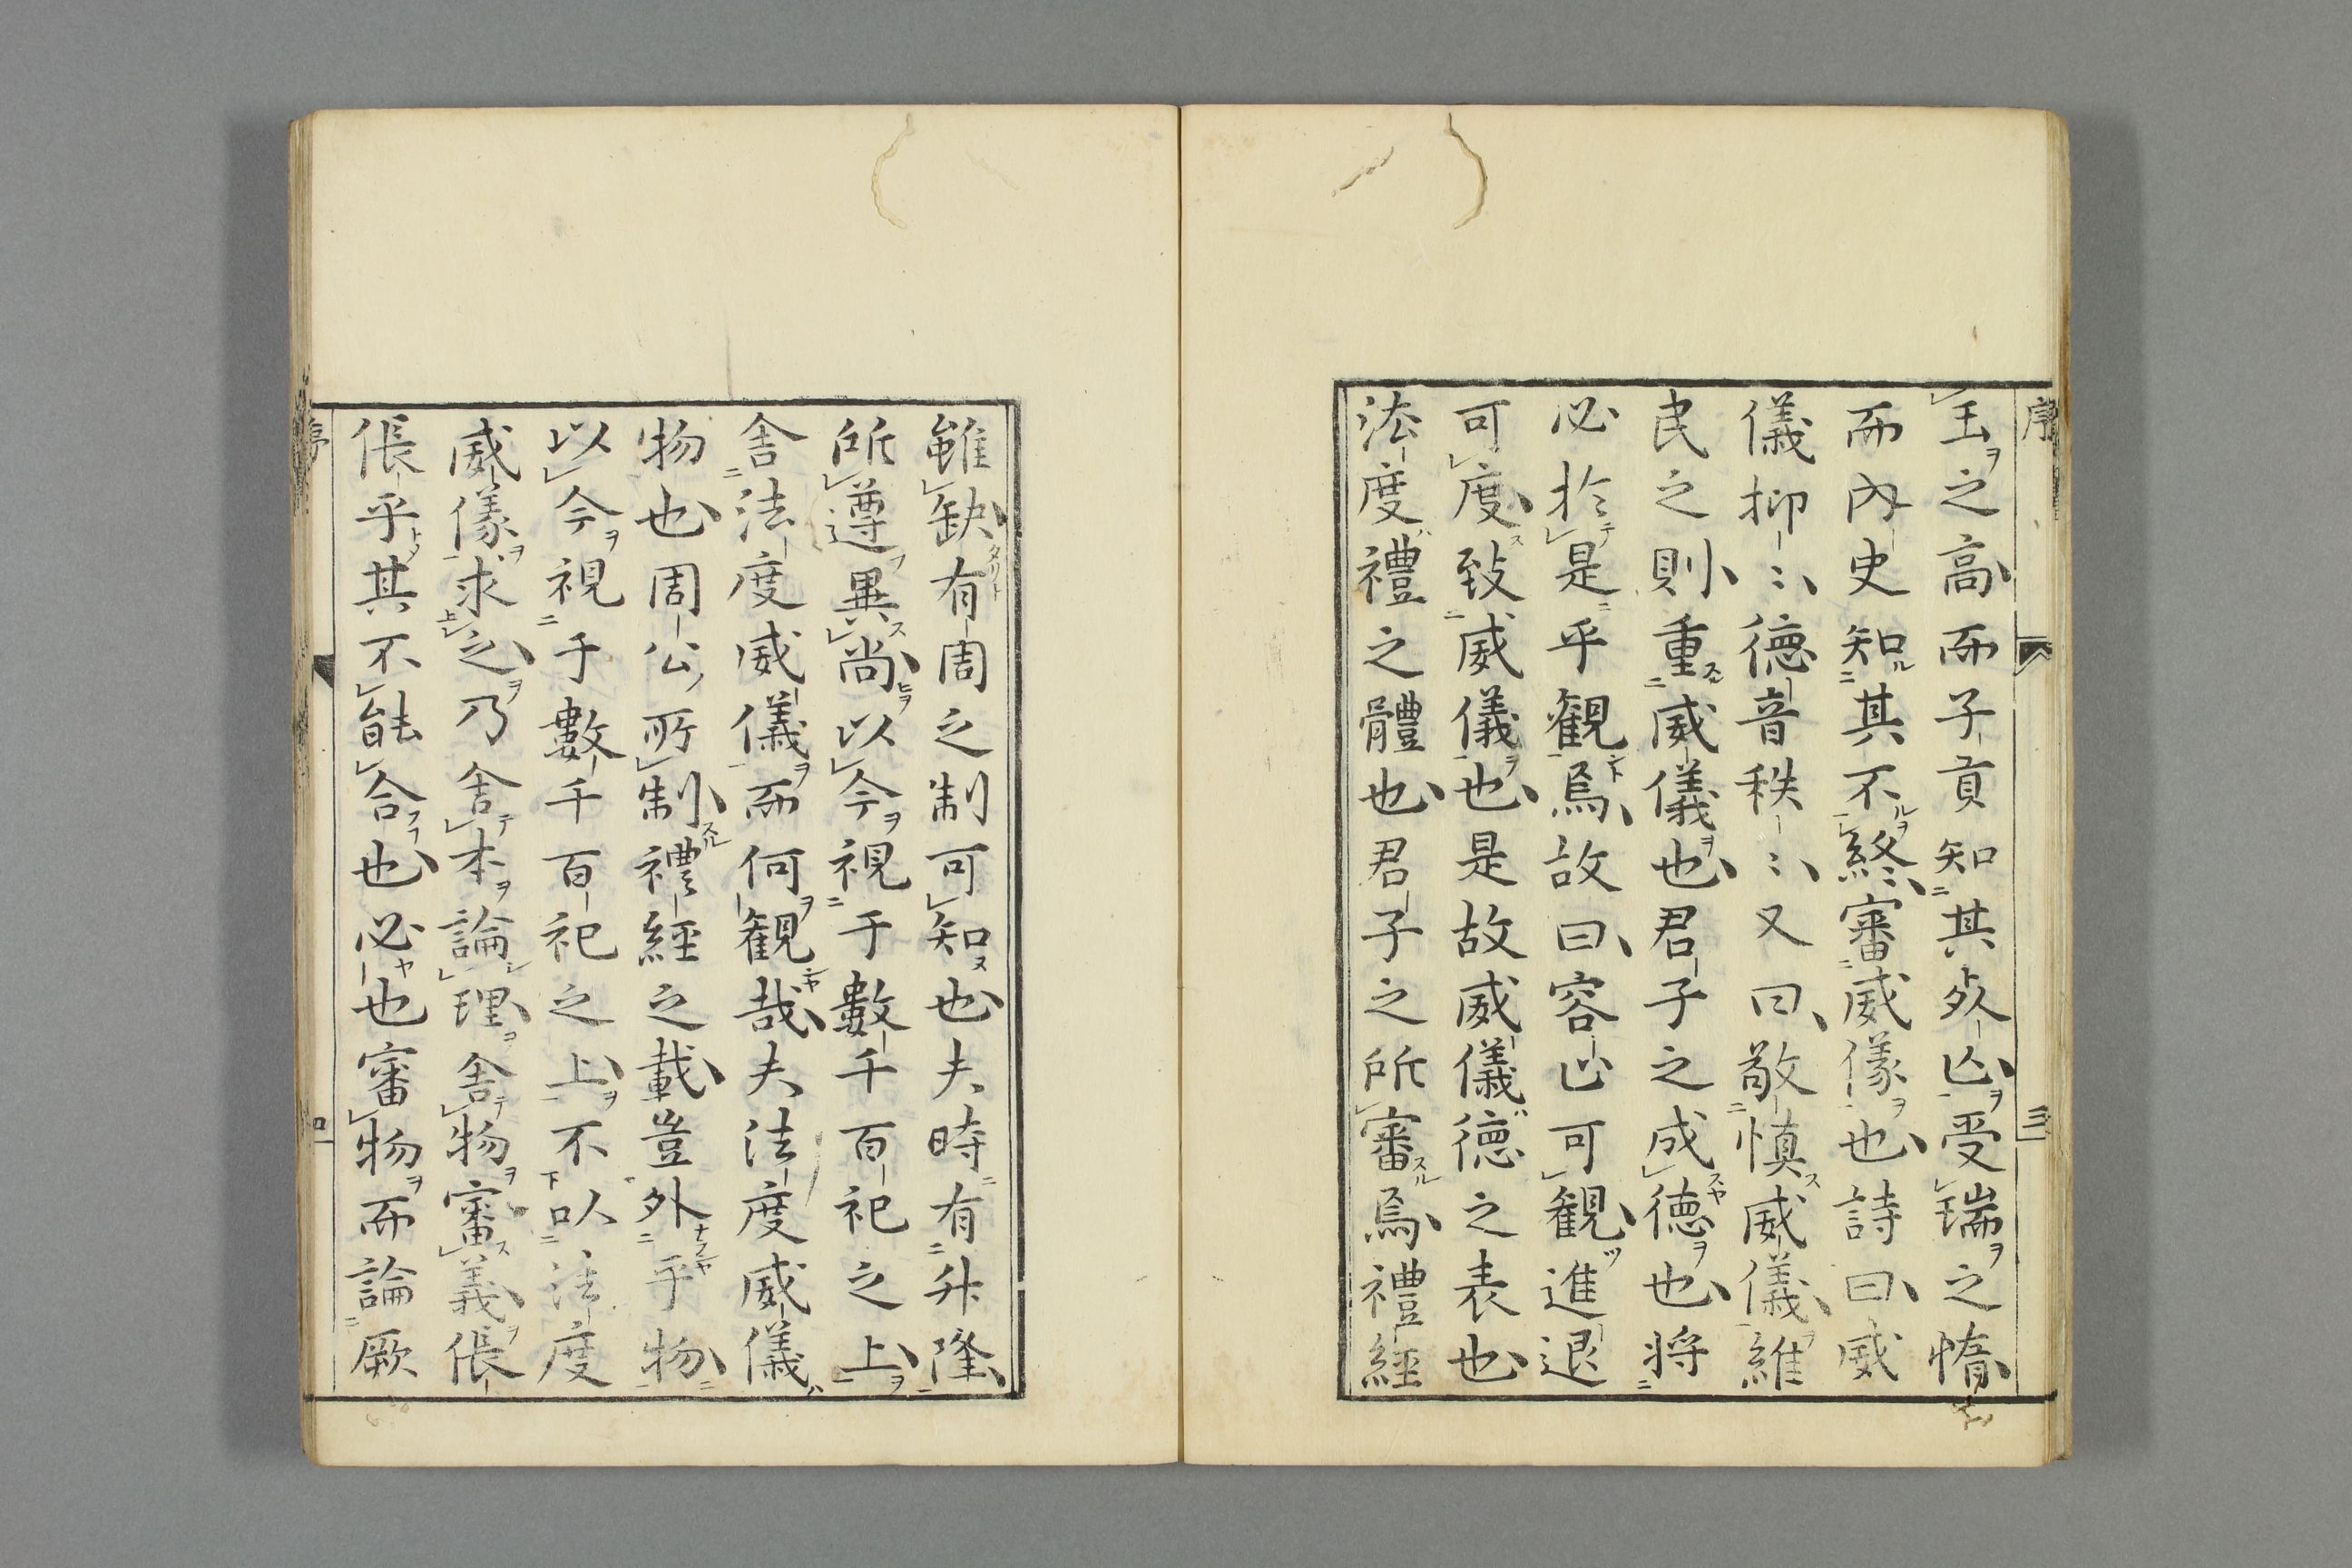 序
三
玉之高而子貢知其死亾受瑞之惰
而內史知其不終審威儀也詩曰威
儀抑〻德音秩〻又曰敬慎威儀維
民之則重威儀也君子之成德也將
必於是乎觀焉故曰容止可觀進退
可度致威儀也是故威儀德之表也
法度禮之體也君子之所審焉禮經
雖缺有周之制可知也夫時有升隆
所遵異尚以今視于數千百祀之上
舍法度威儀而何觀哉夫法度威儀
物也周公所制禮經之載豈外乎物
以今視于數千百祀之上不以法度
威儀求之乃舍本論理舍物審義倀
倀乎其不能合也必也審物而論厥
序
四